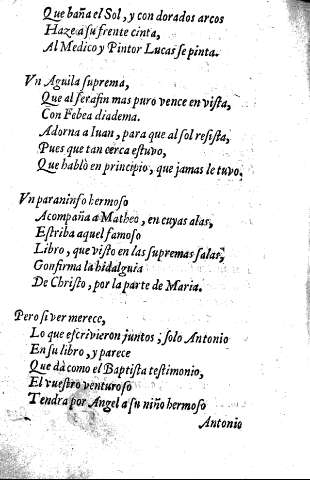 Que baña el Sol, y con dorados arcos
Haze a su frente cinta,
Al Medico y Pintor Lucas se pinta.
Vn Aguila suprema,
Que al serafin mas puro vence en vista,
Con Febea diadema.
Adorna a Iuan, para que al sol resista,
Pues que tan cerca estuvo,
Que hablò en principio, que jamas le tuvo.
Vn paraninfo hermoso
Acompaña a Matheo, en cuyas alas,
Estriba aquel famoso
Libro, que visto en las supremas salas,
Confirma la hidalguia
De Christo, por la parte de Maria.
Pero si ver merece,
Lo que escrivieron juntos; solo Antonio
En su libro, y parece
Que dà como el Baptista testimonio,
El vuestro venturoso
Tendra por Angel a su niño hermoso
Antonio